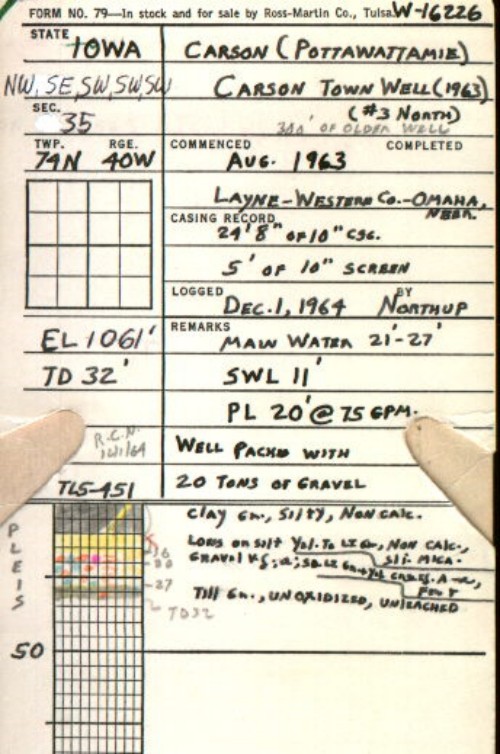 FORM NO. 79—In stock and for sale by Ross-Martin Co., Tulsa. W-16226
STATE IOWA
CARSON (POTTAWATTAMIE)
NW, SE, SW, SW, SW
CARSON TOWN WELL (1963)
SEC. 35
(#3 NORTH)
300' OF OLDER WELL
TWP. RGE.
74N 40W
COMMENCED COMPLETED
AUG. 1963
LAYNE-WESTERN CO.-OMAHA, NEBR.
CASING RECORD
24'8" OF 10" CSG.
5' OF 10" SCREEN
LOGGED BY
DEC. 1, 1964 NORTHUP
EL 1061'
REMARKS
MAIN WATER 21'-27'
TD 32'
SWL 11'
PL 20' @ 75 GPM.
R.C.N.
12/1/64
WELL PACKED WITH
TL5-451
20 TONS OF GRAVEL
PLEIS
CLAY GN., SILTY, NON CALC.
LOESS OR SILT YEL. TO LT GN., NON CALC.,
SLI. MICA.
16
20
27
TD32
TILL GN., UNOXIDIZED, UNLEACHED
50